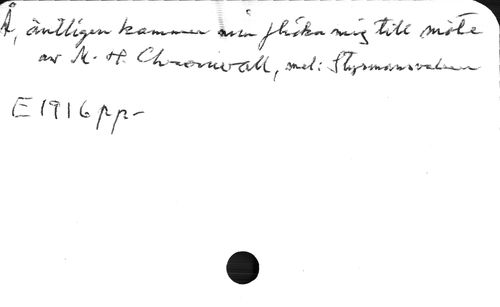 Å, äntligen kommer min flicka mig till möte
av K. H. Chronwall, mel: Styrmansvalsen
E 1916 pp-